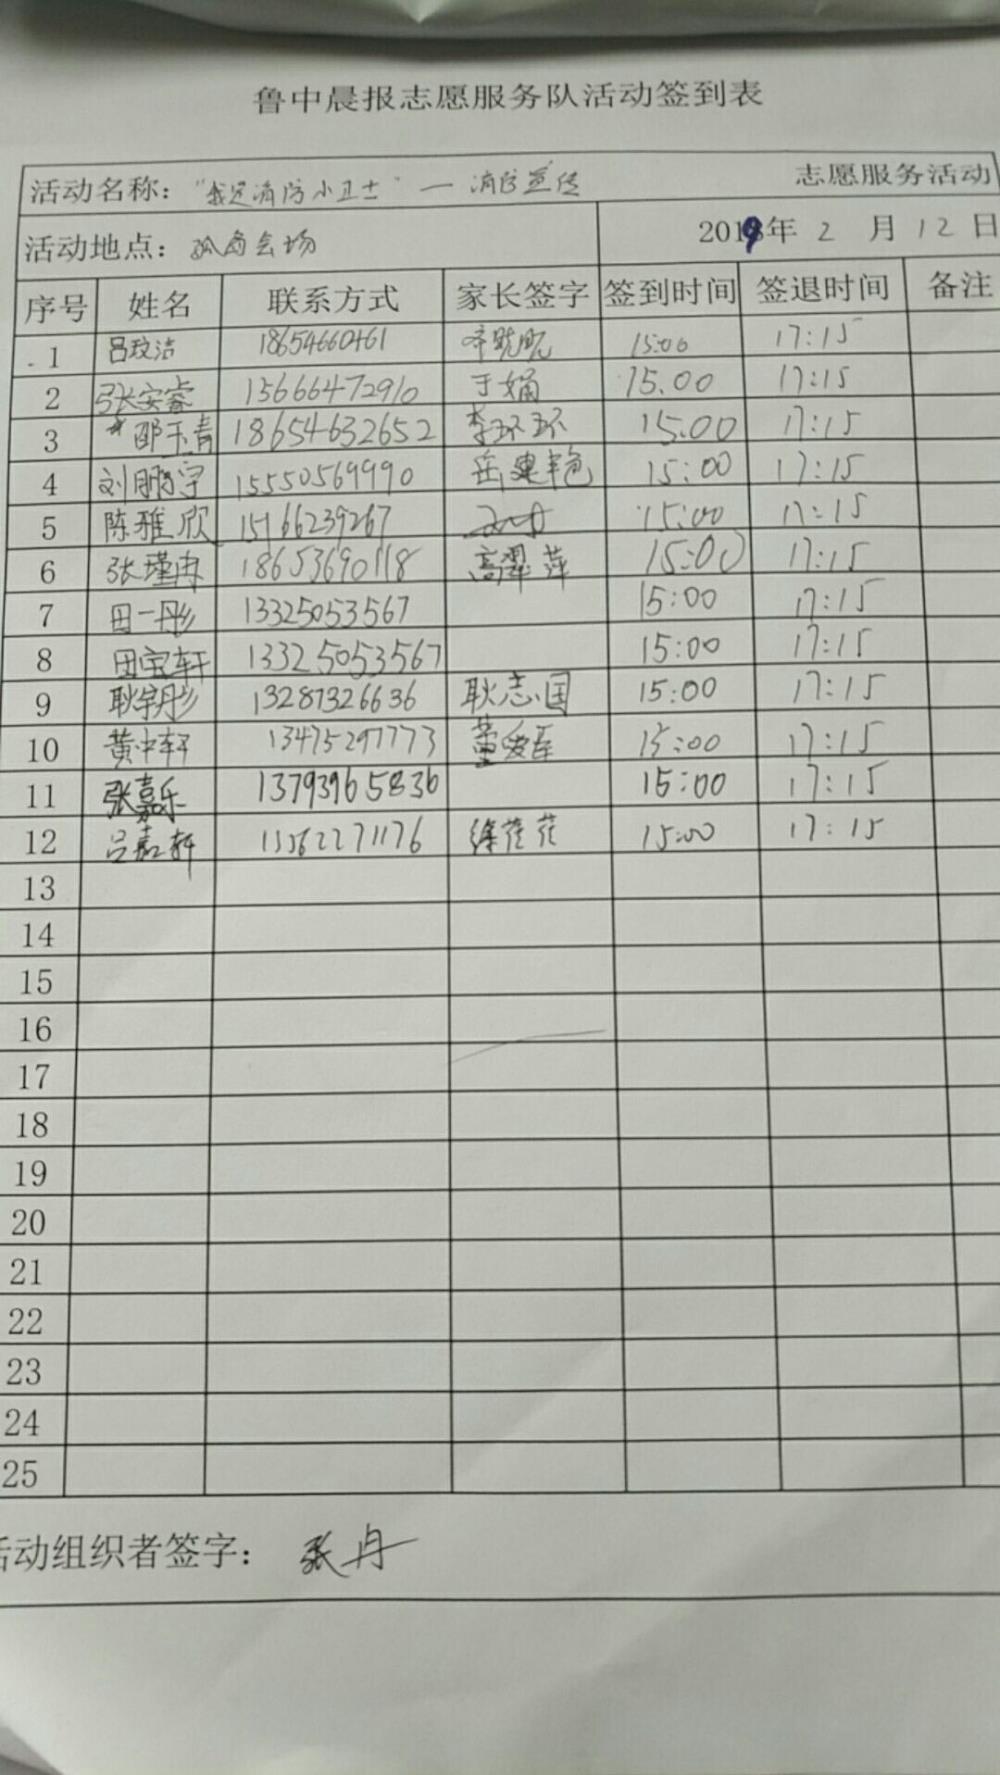 鲁中晨报志愿服务队活动签到表
活动名称："我是消防小卫士"— 消防宣传 志愿服务活动
活动地点：孤岛会场 2019年 2 月 12 日
序号 姓名 联系方式 家长签字 签到时间 签退时间 备注
1 吕玟洁 18654660461 15:00 17:15
2 张安睿 15666472910 于娟 15:00 17:15
3 邵玉青 18654632652 李环环 15:00 17:15
4 刘鹏宇 15550569990 岳建艳 15:00 17:15
5 陈雅欣 15166239267 15:00 17:15
6 张瑾冉 18653690118 高翠萍 15:00 17:15
7 田一彤 13325053567 15:00 17:15
8 田宝轩 13325053567 15:00 17:15
9 耿宇彤 13287326636 耿志国 15:00 17:15
10 黄中轩 13475297773 董爱军 15:00 17:15
11 张嘉乐 13793965836 15:00 17:15
12 吕嘉轩 13562271176 徐花花 15:00 17:15
13
14
15
16
17
18
19
20
21
22
23
24
25
活动组织者签字： 张丹